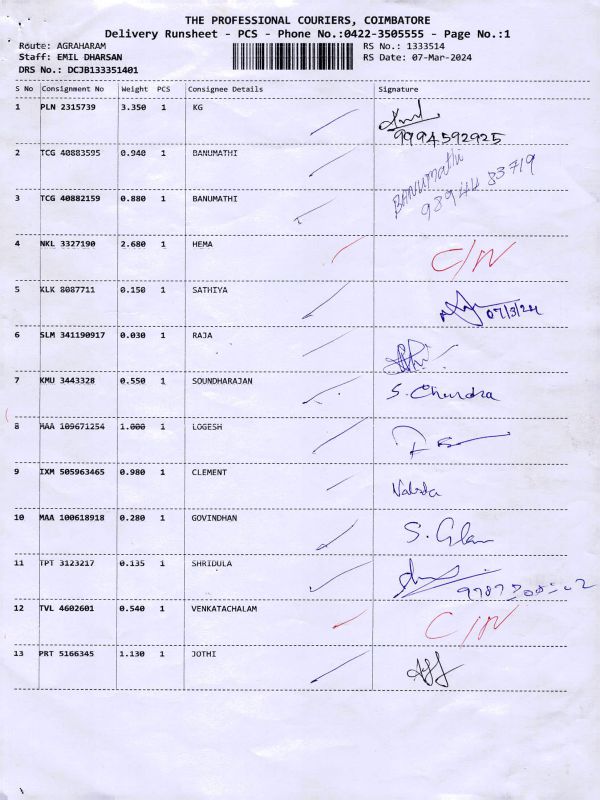 THE PROFESSIONAL COURIERS, COIMBATORE
Delivery Runsheet - PCS - Phone No.:0422-3505555 - Page No.:1
Route: AGRAHARAM RS No.: 1333514
Staff: EMIL DHARSAN RS Date: 07-Mar-2024
DRS No.: DCJB133351401
S No Consignment No Weight PCS Consignee Details Signature
1 PLN 2315739 3.350 1 KG
9994592925
2 TCG 40883595 0.940 1 BANUMATHI BANUMATHI
98944 83719
3 TCG 40882159 0.880 1 BANUMATHI
4 NKL 3327190 2.680 1 HEMA C/N
5 KLK 8087711 0.150 1 SATHIYA 07/3/24
6 SLM 341190917 0.030 1 RAJA
7 KMU 3443328 0.550 1 SOUNDHARAJAN S. Chandra
8 MAA 109671254 1.000 1 LOGESH
9 IXM 505963465 0.980 1 CLEMENT
10 MAA 100618918 0.280 1 GOVINDHAN
11 TPT 3123217 0.135 1 SHRIDULA
12 TVL 4602601 0.540 1 VENKATACHALAM C/N
13 PRT 5166345 1.130 1 JOTHI